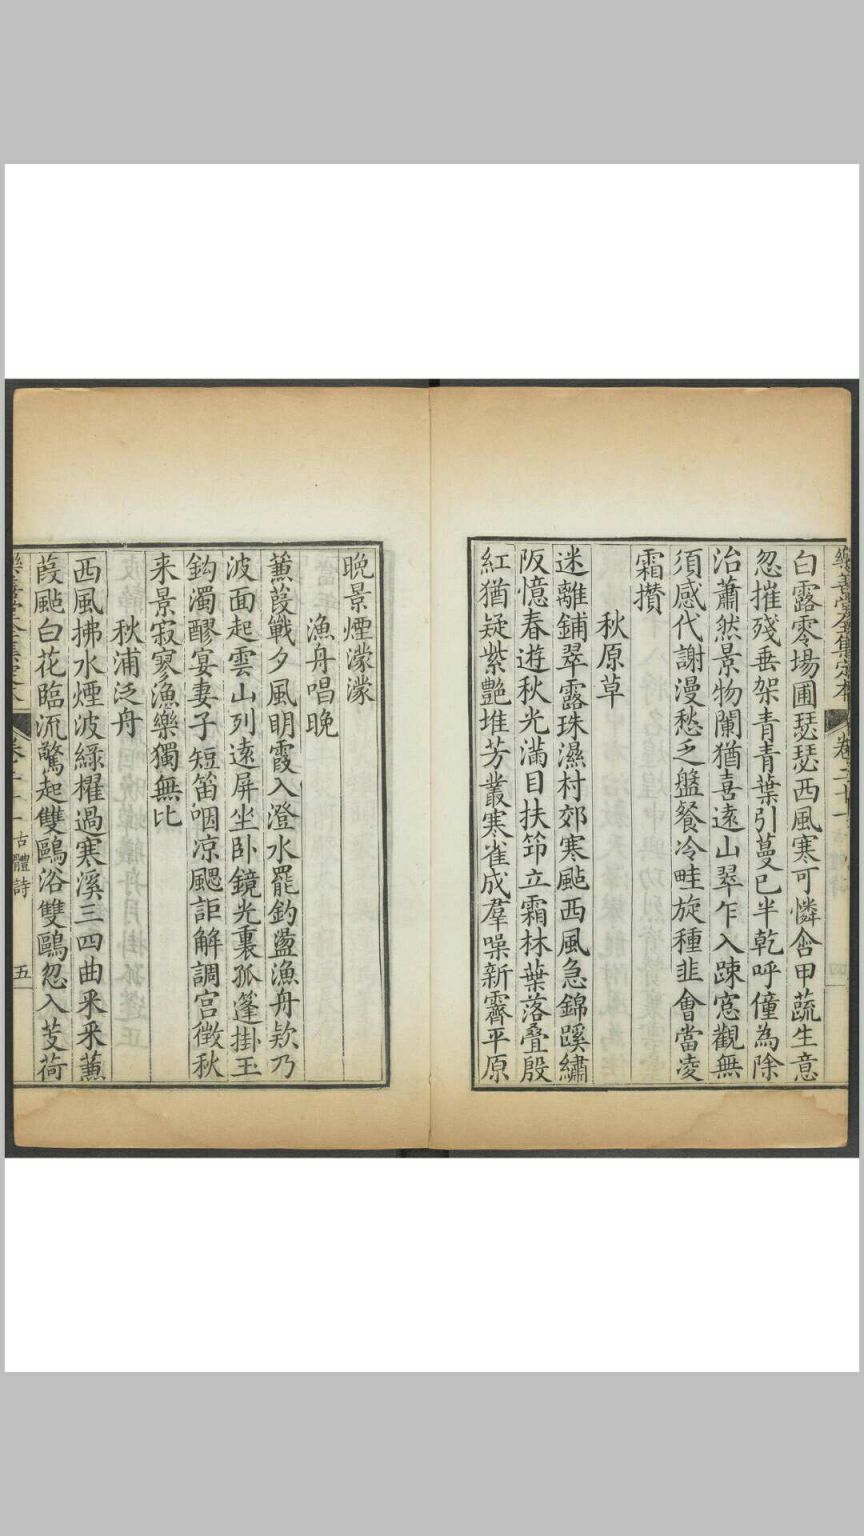 白露零場圃瑟瑟西風寒可憐含甲蔬生意
忽摧殘垂架青青葉引蔓已半乾呼僮為除
治蕭然景物闌猶喜遠山翠乍入踈窓觀無
須感代謝漫愁乏盤餐冷畦旋種韭會當凌
霜攅
秋原草
迷離鋪翠露珠濕村郊寒颭西風急錦蹊繡
阪憶春遊秋光滿目扶笻立霜林葉落疊殷
紅猶疑紫艷堆芳叢寒雀成羣噪新霽平原
晚景煙濛濛
漁舟唱晚
蕙葭戰夕風明霞入澄水罷釣盪漁舟欵乃
波面起雲山列遠屏坐卧鏡光裏孤篷掛玉
鈎濁醪宴妻子短笛咽凉颸詎解調宮徵秋
来景寂寥漁樂獨無比
秋浦泛舟
西風拂水煙波綠櫂過寒溪三四曲釆釆蒹
葭颭白花臨流驚起雙鷗浴雙鷗忽入芰荷
卷二十一
古體詩
五